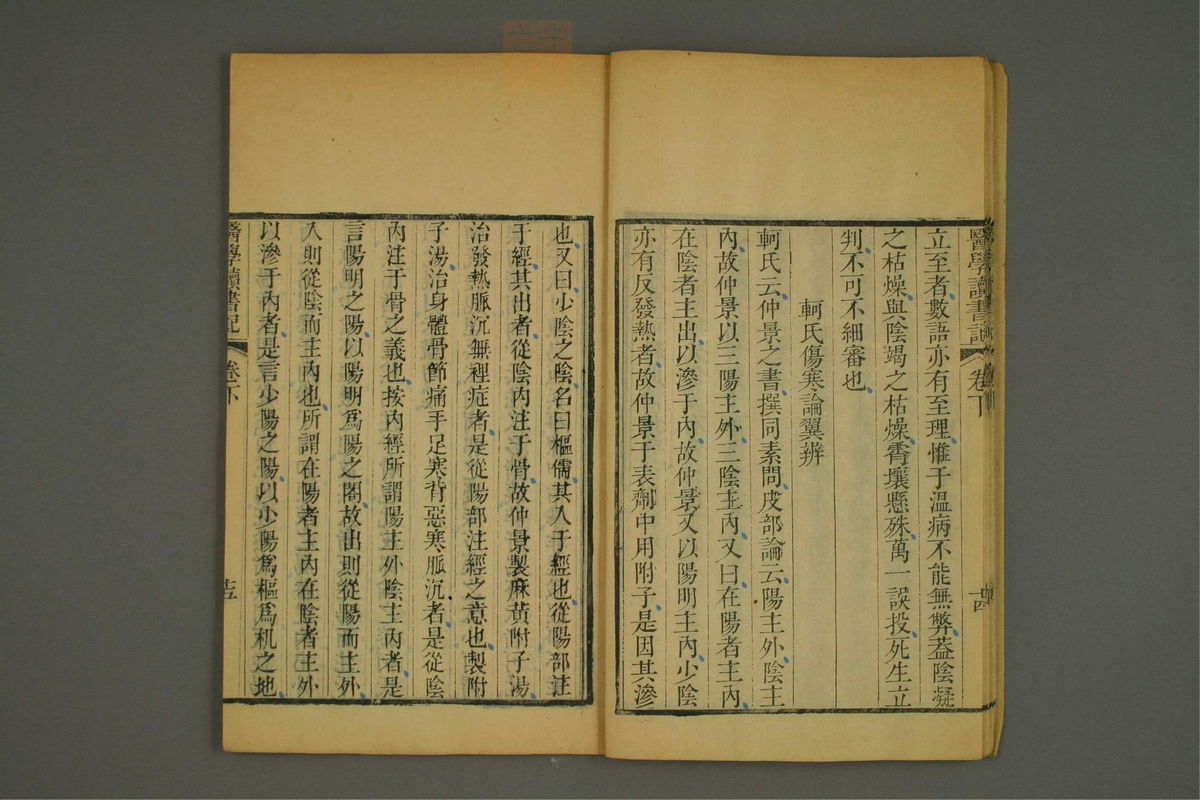 醫學讀書記 卷下 廿四
立至者數語亦有至理惟于溫病不能無弊葢陰凝
之枯燥與陰竭之枯燥霄壤懸殊萬一誤投死生立
判不可不細審也
軻氏傷寒論翼辨
軻氏云仲景之書撰同素問皮部論云陽主外陰主
內故仲景以三陽主外三陰主內又曰在陽者主內
在陰者主出以滲于內故仲景又以陽明主內少陰
亦有反發熱者故仲景于表劑中用附子是因其滲
也又曰少陰之陰名曰樞儒其入于經也從陽部注
于經其出者從陰內注于骨故仲景製麻黃附子湯
治發熱脈沉無裡症者是從陽部注經之意也製附
子湯治身體骨節痛手足寒背惡寒脈沉者是從陰
內注于骨之義也按內經所謂陽主外陰主內者是
言陽明之陽以陽明爲陽之閤故出則從陽而主外
入則從陰而主內也所謂在陽者主內在陰者主外
以滲于內者是言少陽之陽以少陽爲樞爲机之地
醫學讀書記 卷下 廿五